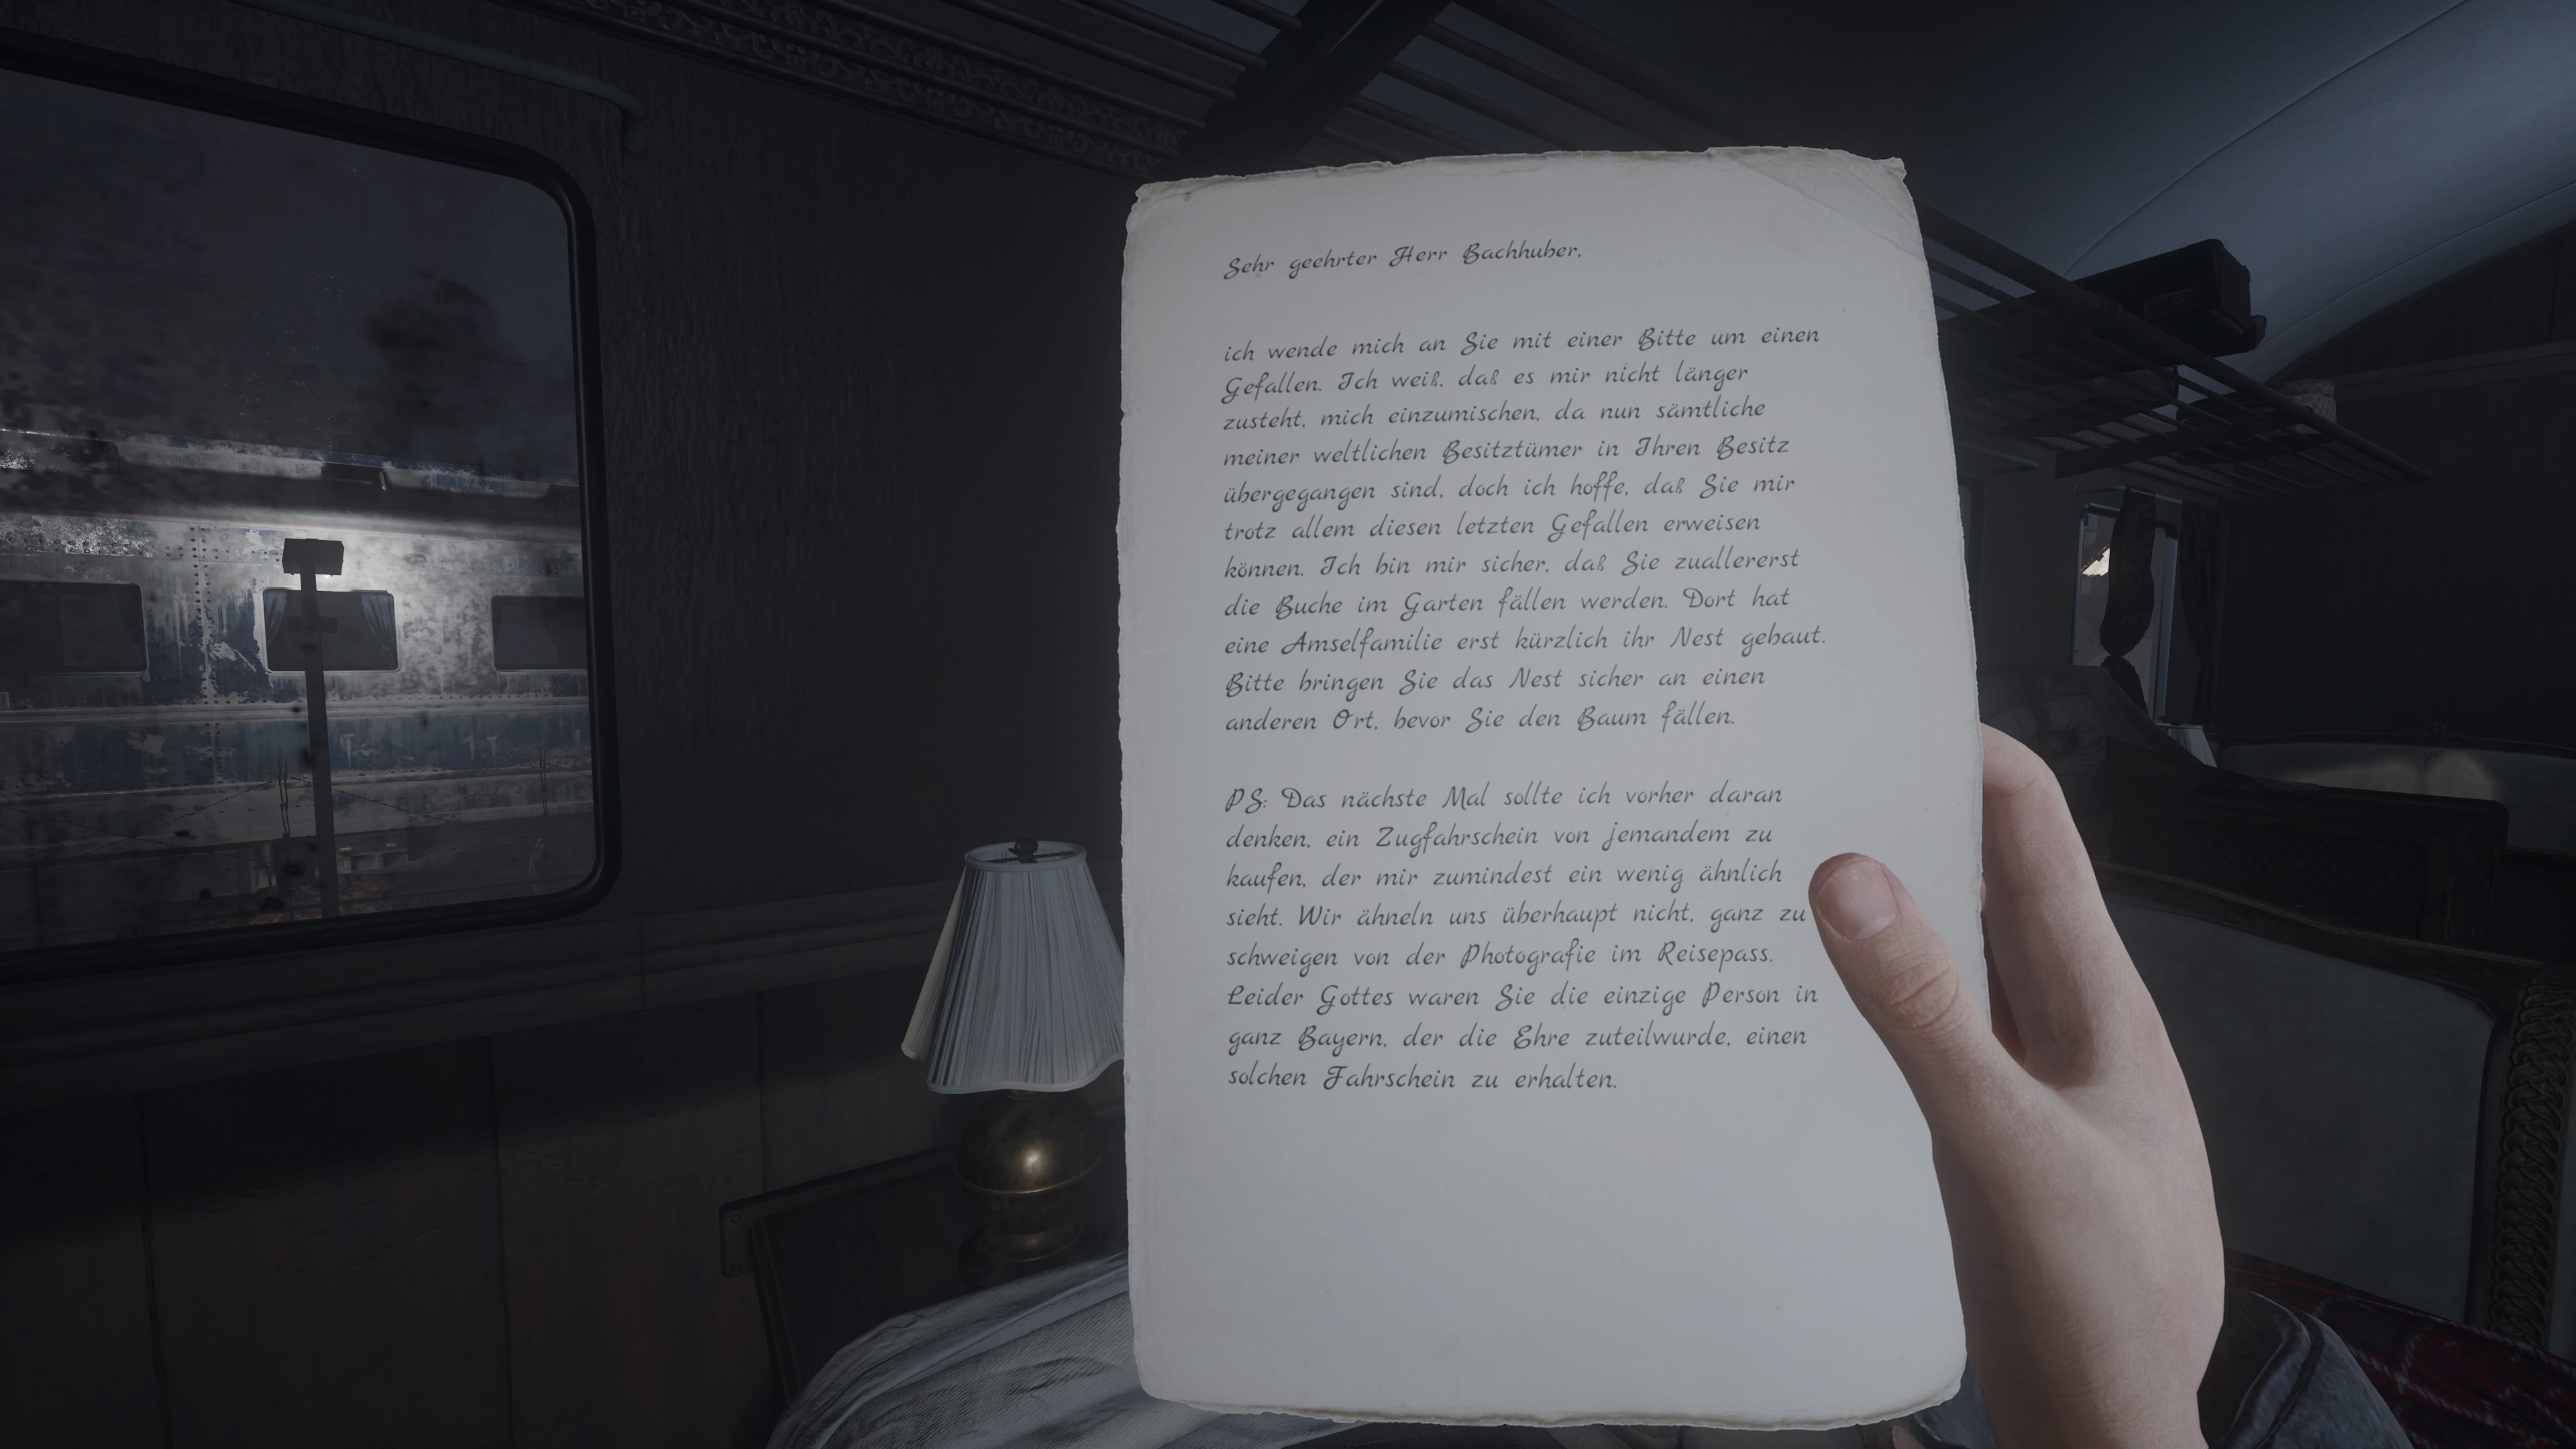 Sehr geehrter Herr Bachhuber,
ich wende mich an Sie mit einer Bitte um einen
Gefallen. Ich weiß, daß es mir nicht länger
zusteht, mich einzumischen, da nun sämtliche
meiner weltlichen Besitztümer in Ihren Besitz
übergegangen sind, doch ich hoffe, daß Sie mir
trotz allem diesen letzten Gefallen erweisen
können. Ich bin mir sicher, daß Sie zuallererst
die Buche im Garten fällen werden. Dort hat
eine Amselfamilie erst kürzlich ihr Nest gebaut.
Bitte bringen Sie das Nest sicher an einen
anderen Ort, bevor Sie den Baum fällen.
PS: Das nächste Mal sollte ich vorher daran
denken, ein Zugfahrschein von jemandem zu
kaufen, der mir zumindest ein wenig ähnlich
sieht. Wir ähneln uns überhaupt nicht, ganz zu
schweigen von der Photografie im Reisepass.
Leider Gottes waren Sie die einzige Person in
ganz Bayern, der die Ehre zuteilwurde, einen
solchen Fahrschein zu erhalten.